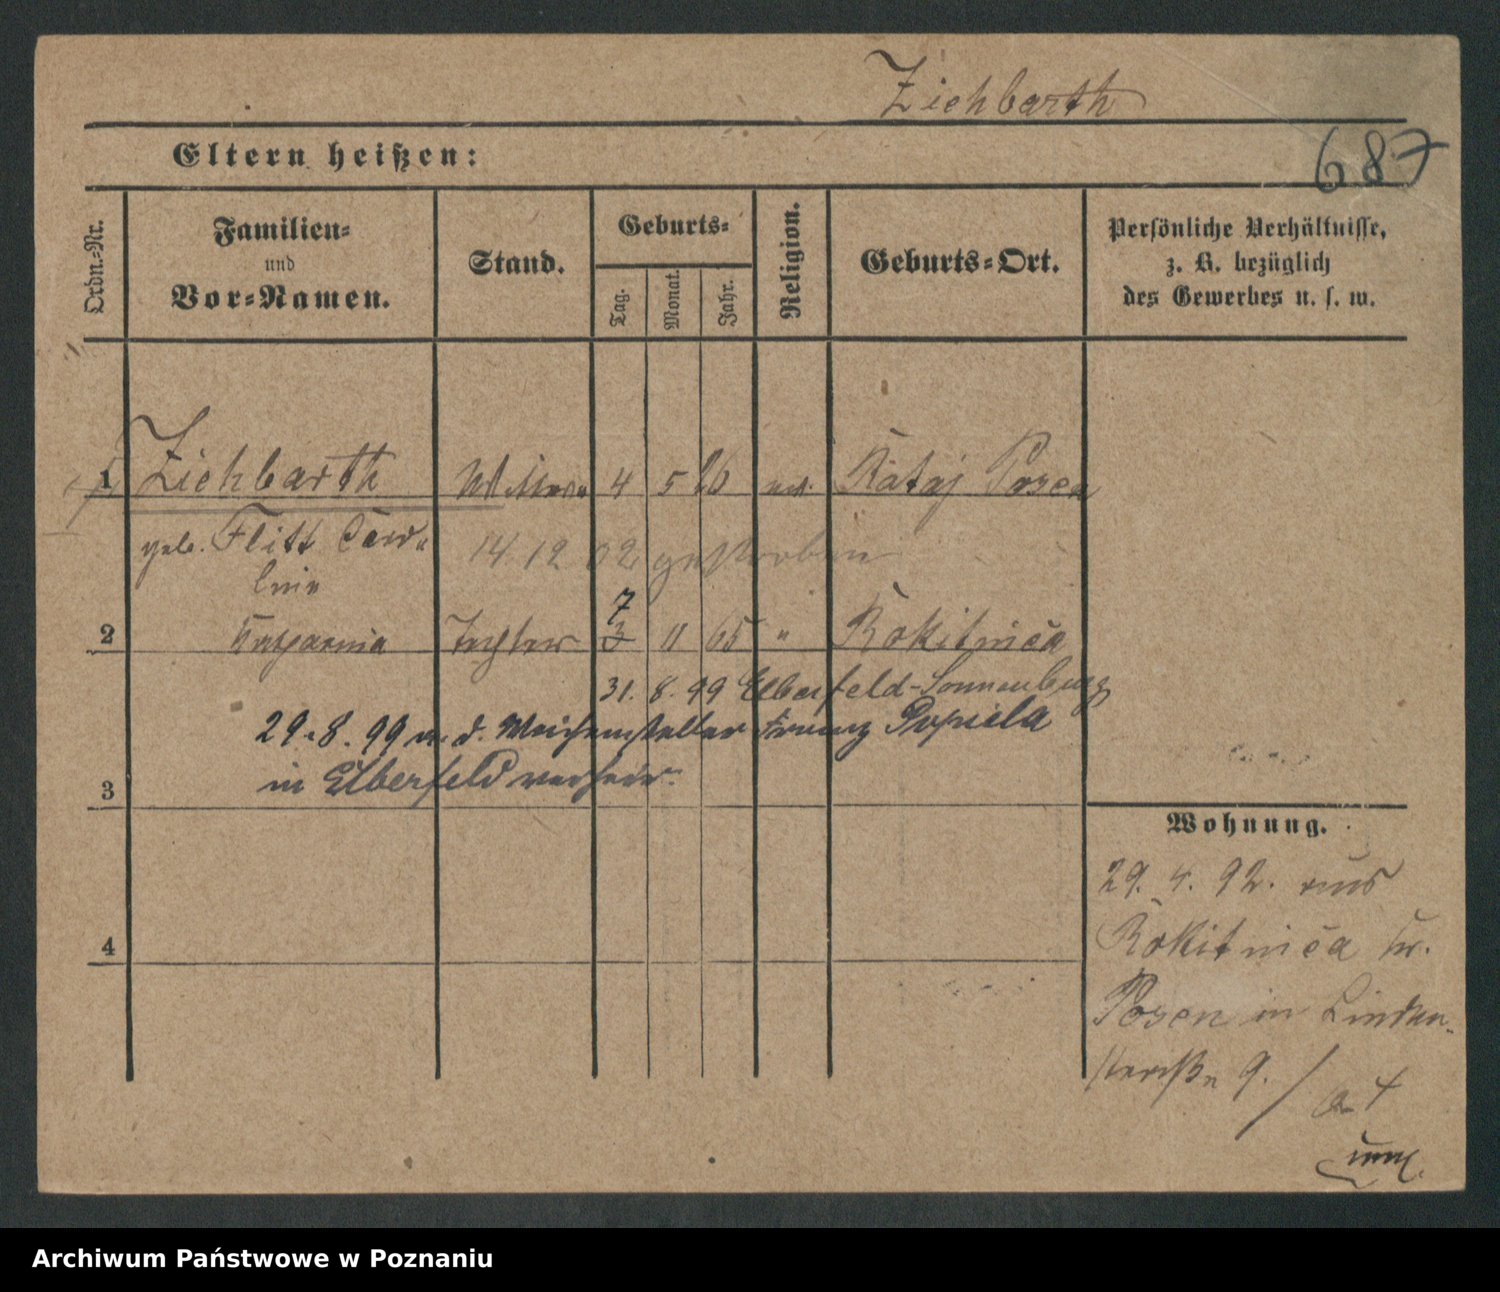 Ziehbarth
687
Eltern heißen:
Ordn.-Nr.
Familien-
und
Vor-Namen.
Stand.
Geburts-
Tag.
Monat.
Jahr.
Religion.
Geburts-Ort.
Persönliche Verhältnisse,
z. B. bezüglich
des Gewerbes u. s. w.
1 Ziehbarth Wittwe 4 5 26 ev. Rataj Posen
geb. Flitt Caro-
line 14. 12 02 gestorben
7
2 Tochter 3 11 65 " Rokitnica
31. 8. 99 Elberfeld-Sonnenburg
29.8.99 m. d. Weichensteller Franz Popiela
in Elberfeld verheir.
3
4
Wohnung.
29. 4. 92. aus
Rokitnica Kr.
Posen in Linden-
straße 9. /